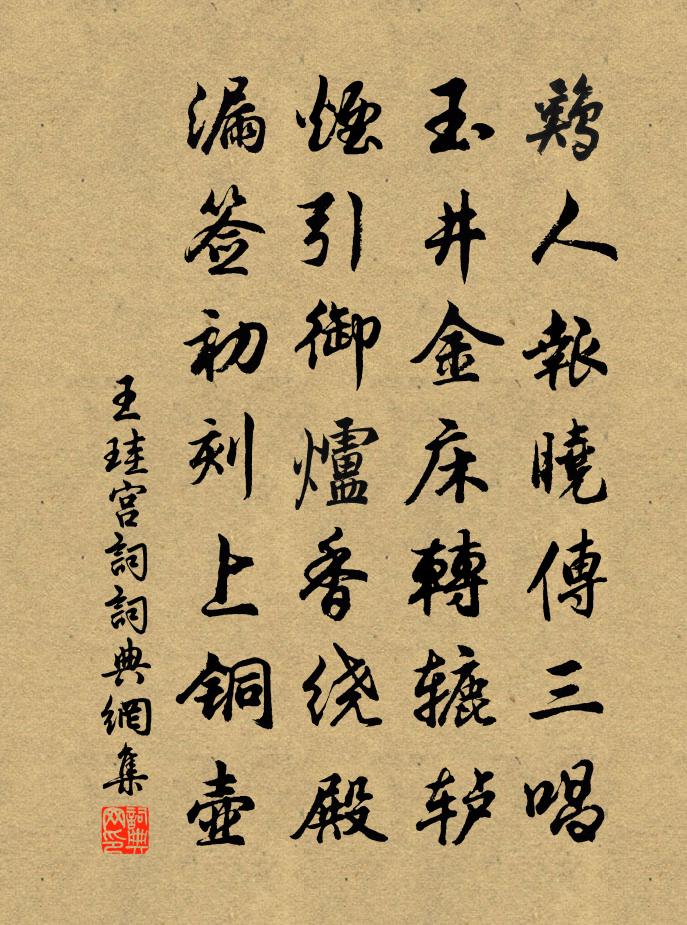 鷄人報曉傳三唱
玉井金床轉辘轳
煙引御爐香绕殿
漏签初刻上铜壶
王珪宫詞詞典網集
詞典网印